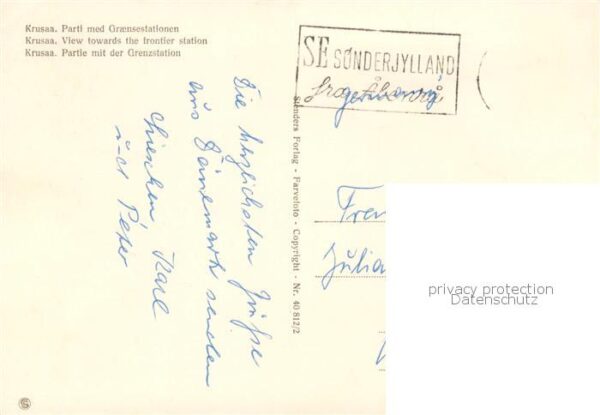 Krusaa. Parti med Grænsestationen
Krusaa. View towards the frontier station
Krusaa. Partie mit der Grenzstation
SE SØNDERJYLLAND
Die herzlichsten Grüße
aus Dänemark senden
Karl
und Peter
Stenders Forlag - Farvefoto - Copyright - Nr. 40 812/2
Julia
privacy protection
Datenschutz